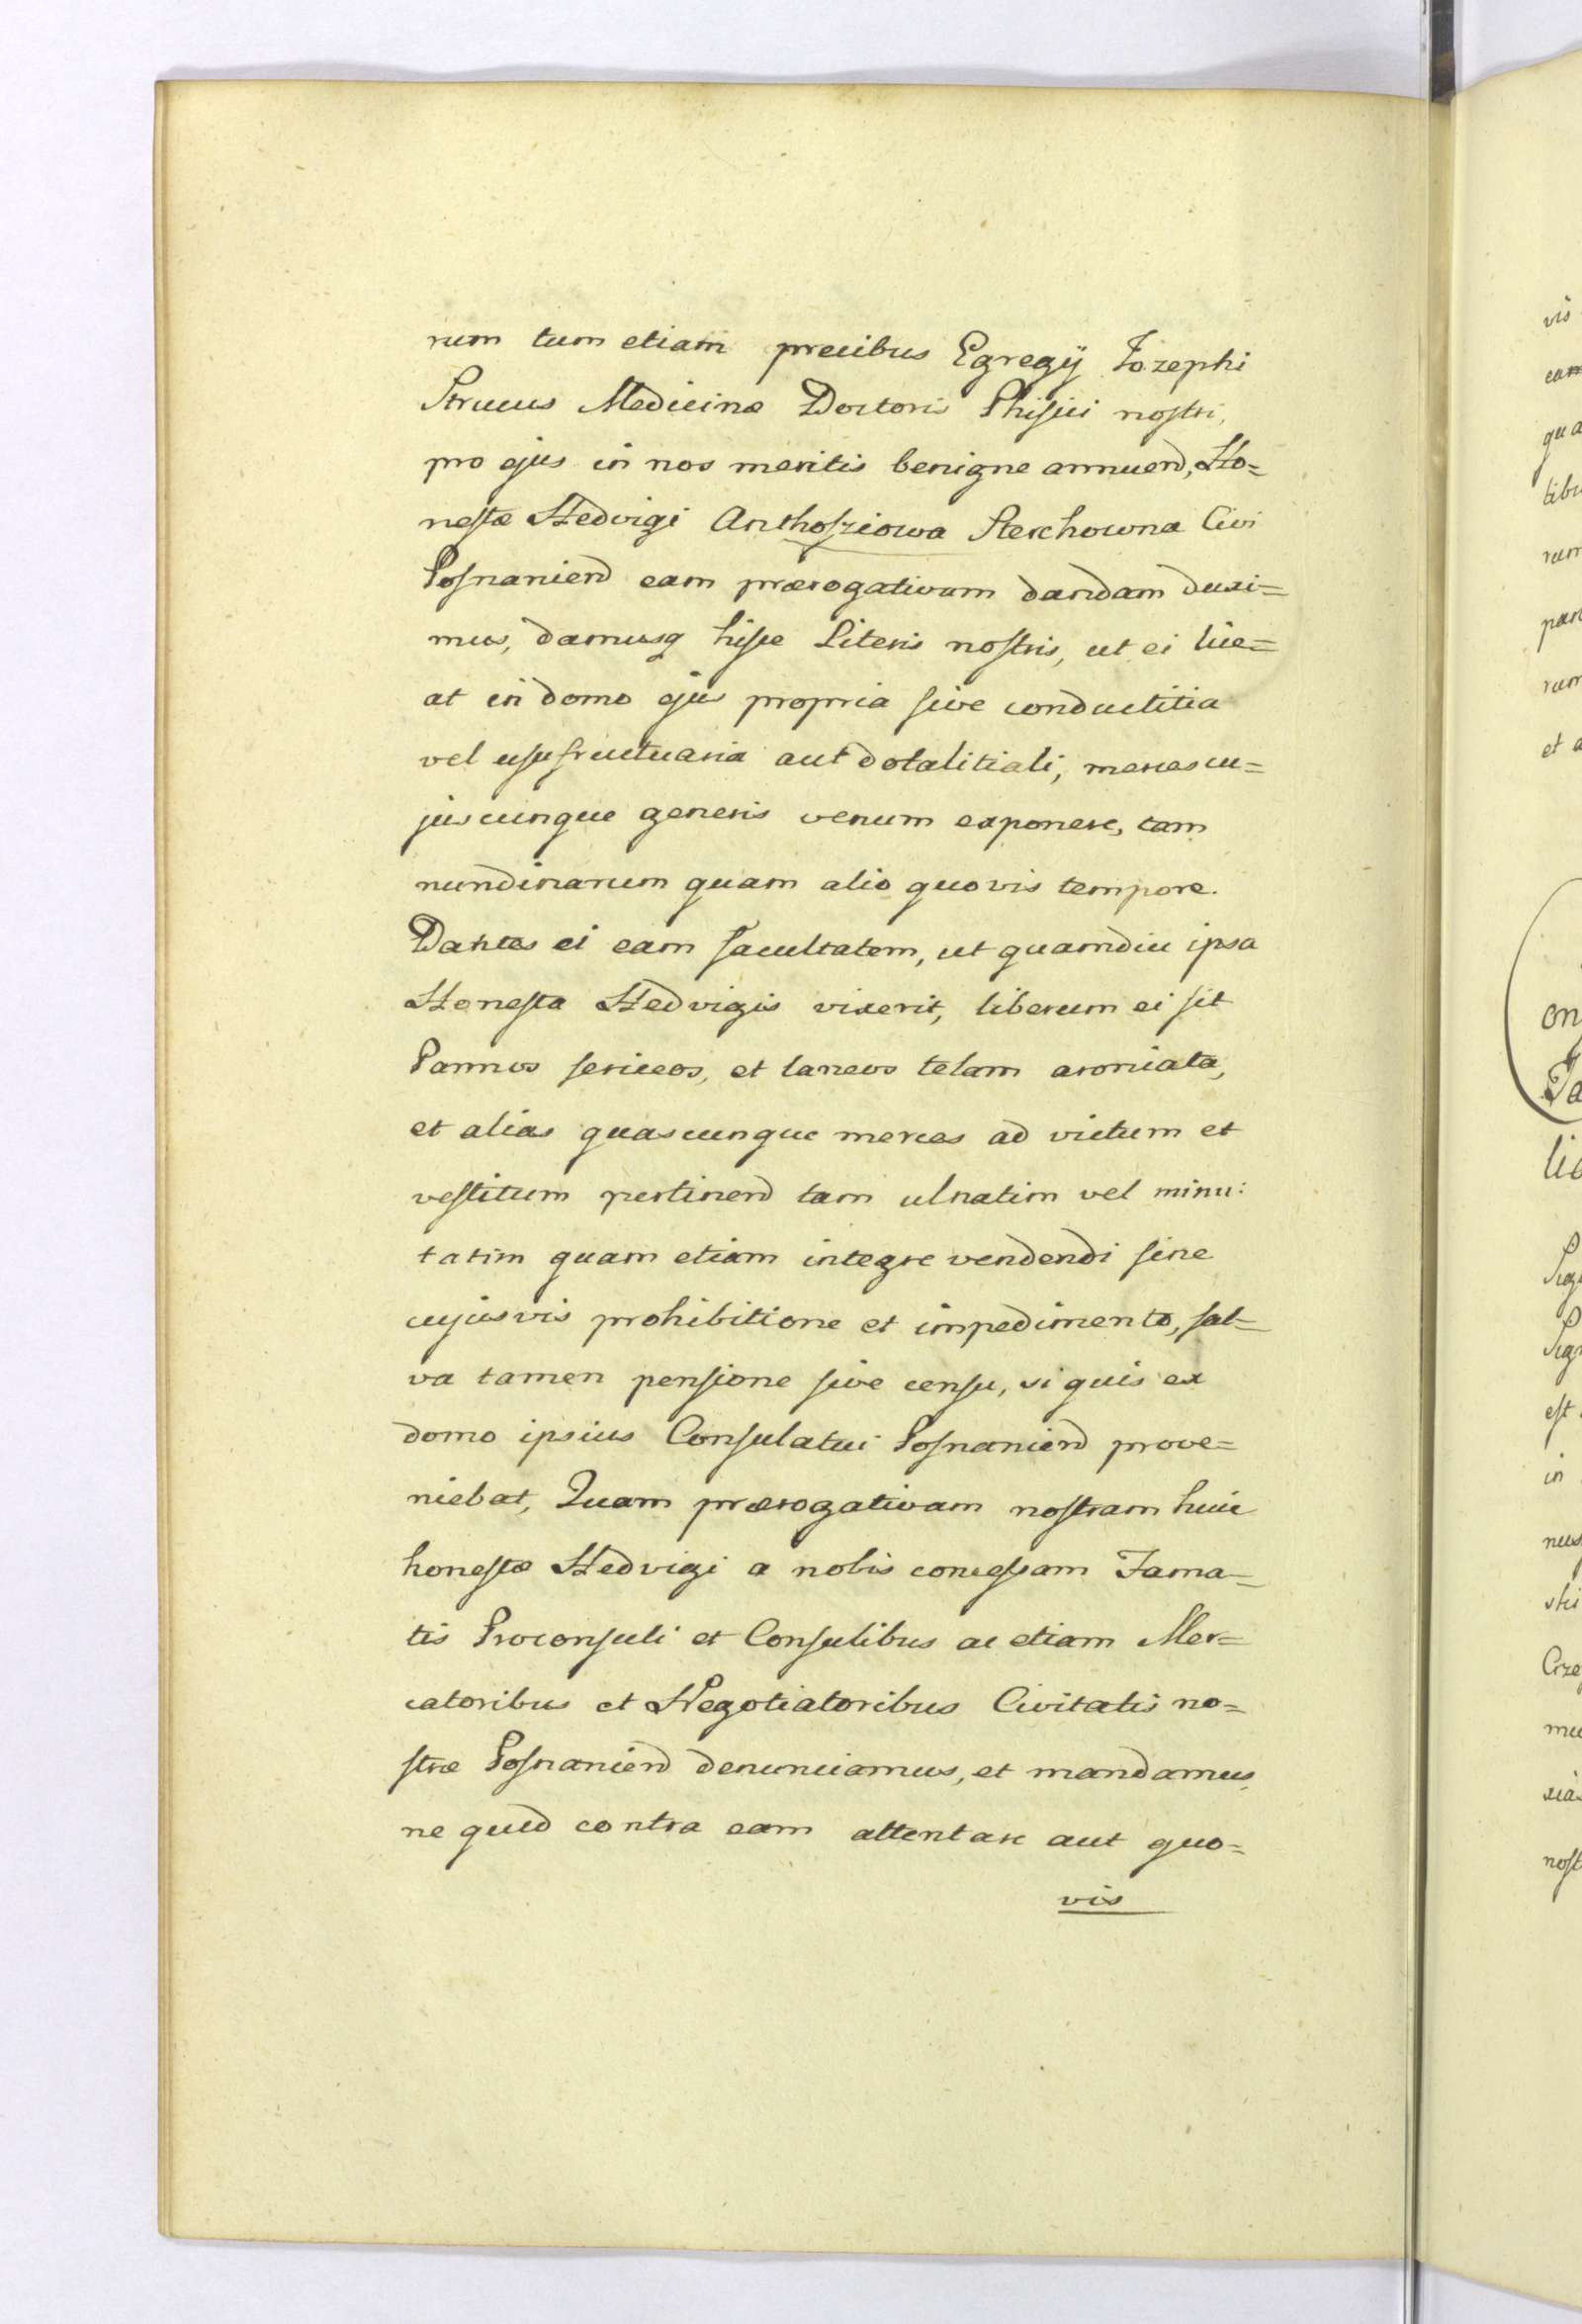 rum tum etiam precibus Egregÿ Jozephi
Strucus Medicinæ Doctoris Phisici nostri,
pro ejus in nos meritis benigne annuend, Ho=
nestæ Hedvigi Anthosziowa Sterchowna Civi
Posnaniend eam prærogativam dandam duxi=
mus, damusq hisce Literis nostris, ut ei lice=
at in domo ejus propria sive conductitia
vel usufructuaria aut dotalitiali, merces cu=
juscunque generis venum exponere, tam
nundinarum quam alio quovis tempore.
Dantes ei eam facultatem, ut quamdiu ipsa
Honesta Hedvigis vixerit, liberum ei sit
Pannos sericeos, et laneos telam aromata,
et alias quascunque merces ad victum et
vestitum pertinend tam ulnatim vel minu:
tatim quam etiam integre vendendi sine
cujusvis prohibitione et impedimento, sal=
va tamen pensione sive censu, si quis ex
domo ipsius Consulatui Posnaniend prove=
niebat, Quam prærogativam nostram huic
honestæ Hedvigi a nobis concessam Fama=
tis Proconsuli et Consulibus ac etiam Mer=
catoribus et Negotiatoribus Civitatis no=
stræ Posnaniend denunciamus, et mandamus
ne quid contra eam attentare aut quo=
vis